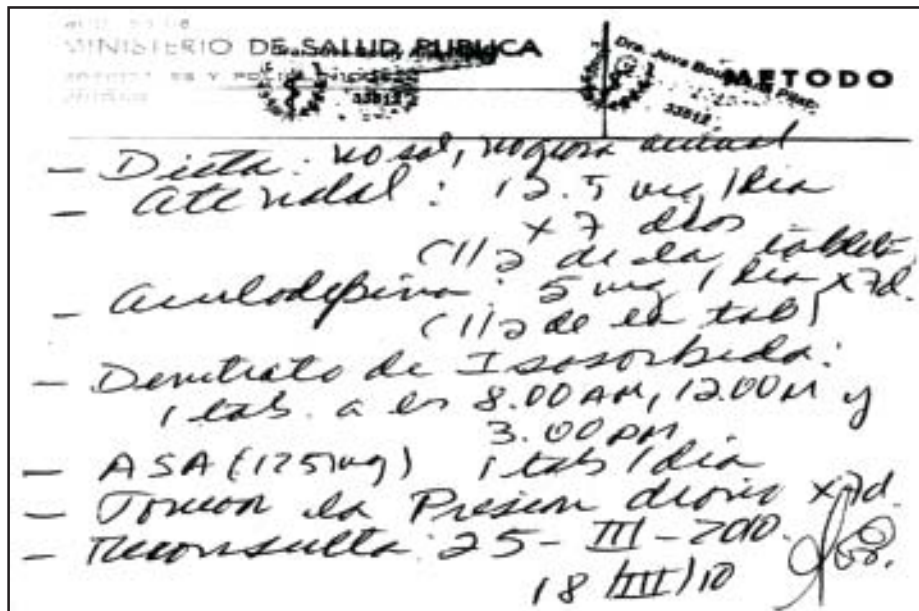 MINISTERIO DE SALUD PUBLICA
METODO
33812
33812
- Dieta: no sal, no grasa animal
- Atenolol: 12.5 mg / dia
x 7 dias
(1/2 de la tableta
- Amlodipino: 5 mg / dia x 7d.
(1/2 de la tab)
- Denitrato de Isosorbida:
1 tab. a las 8.00 AM, 12.00 M y
3.00 PM
- ASA (125 mg) 1 tab / dia
- Tomar la Presion diario x 7d.
- Reconsulta: 25 - III - 2010.
18/III/10